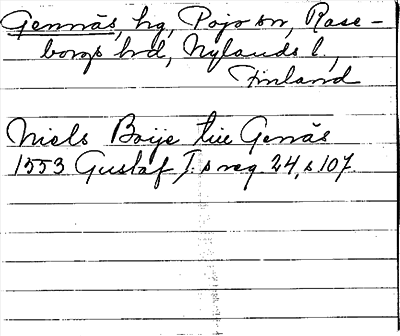 Gennäs, hg, Pojo sn, Rase-
borgs hrd, Nylands l.,
Finland
Niels Boije till Genäs
1553 Gustaf I:s reg. 24, s 107.